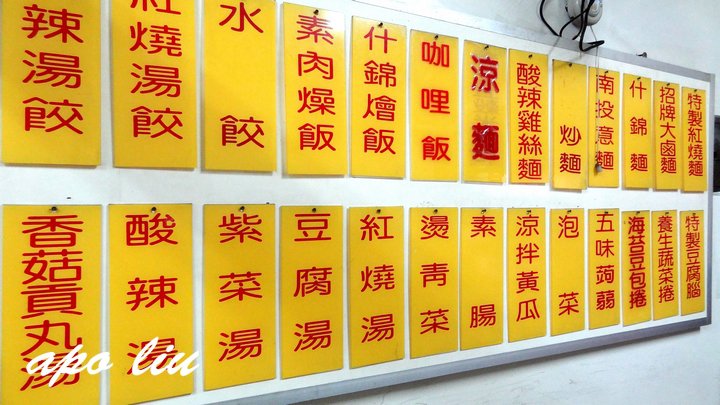 特製紅燒麵
招牌大鹵麵
什錦麵
南投意麵
炒麵
酸辣雞絲麵
涼麵
咖哩飯
什錦燴飯
素肉燥飯
水餃
紅燒湯餃
辣湯餃
特製豆腐腦
養生蔬菜捲
海苔豆包捲
五味蒟蒻
泡菜
涼拌黃瓜
素腸
燙青菜
紅燒湯
豆腐湯
紫菜湯
酸辣湯
香菇貢丸湯
apo liu